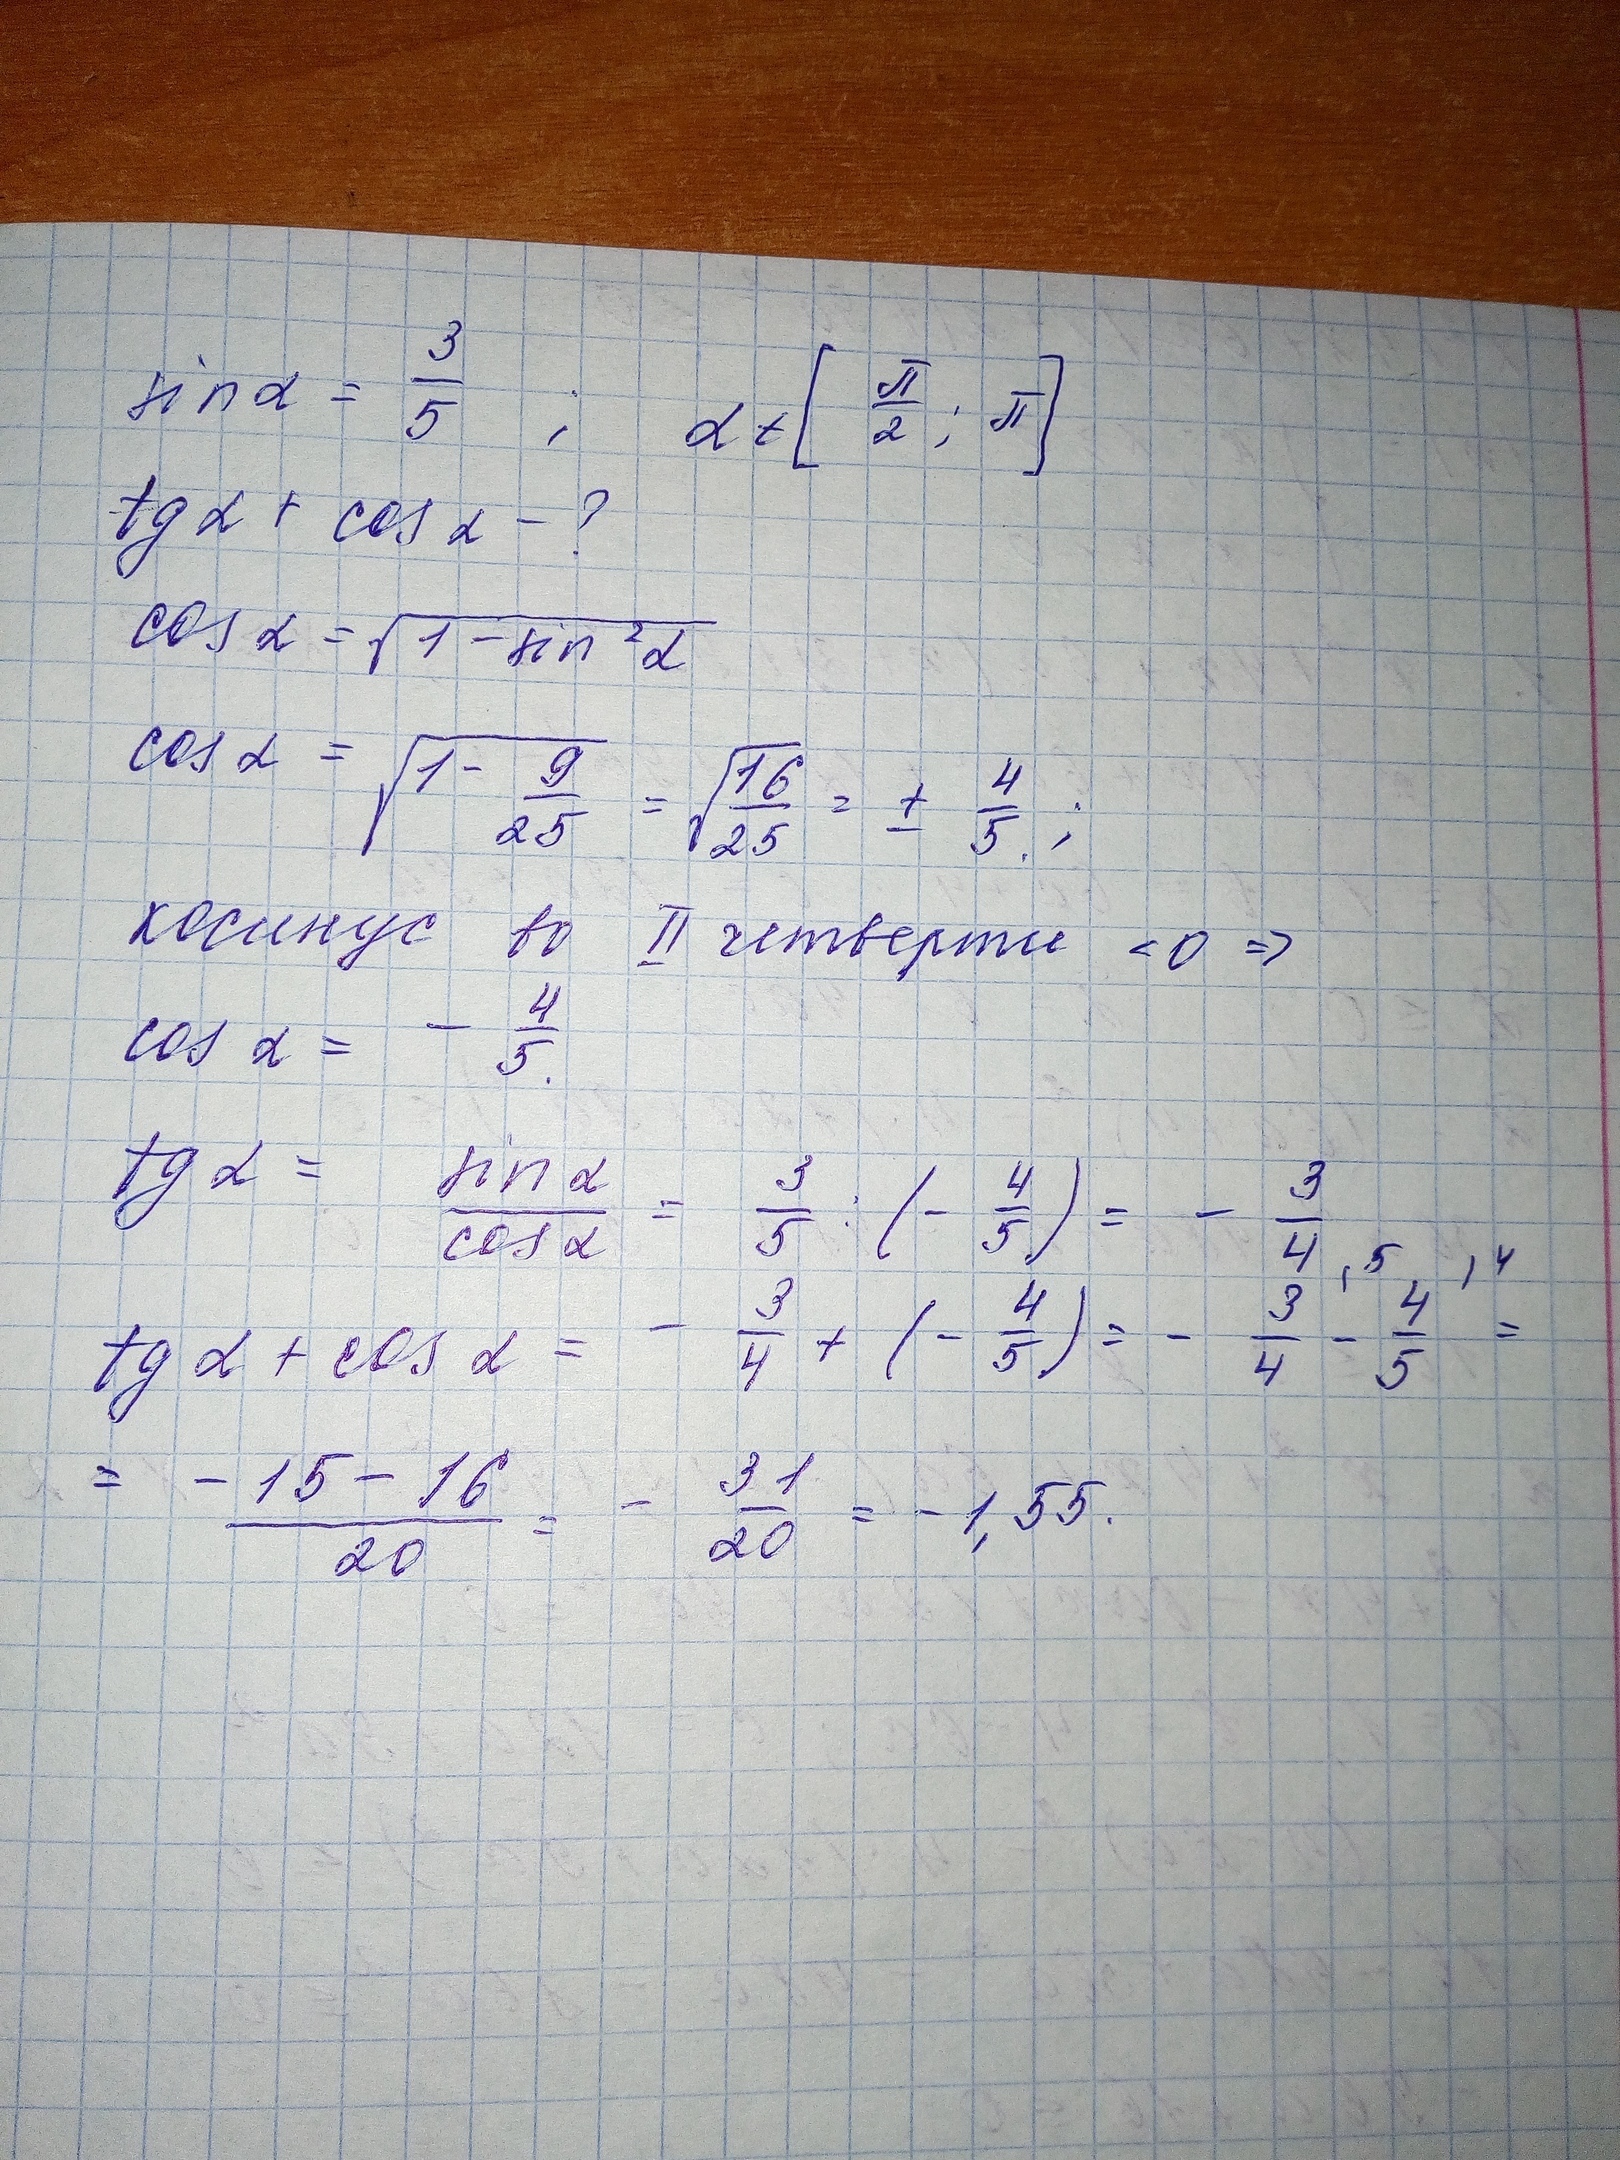 sin α = 3/5 ; α ∈ [π/2; π]
tg α + cos α - ?
cos α = √(1 - sin²α)
cos α = √(1 - 9/25) = √(16/25) = ± 4/5. ;
косинус во II четверти < 0 =>
cos α = - 4/5.
tg α = sin α/cos α = 3/5 : (- 4/5) = - 3/4
tg α + cos α = - 3/4 + (- 4/5) = - 3/4 ⁽⁵ - 4/5 ⁽⁴ =
= (-15 - 16)/20 = - 31/20 = - 1,55.